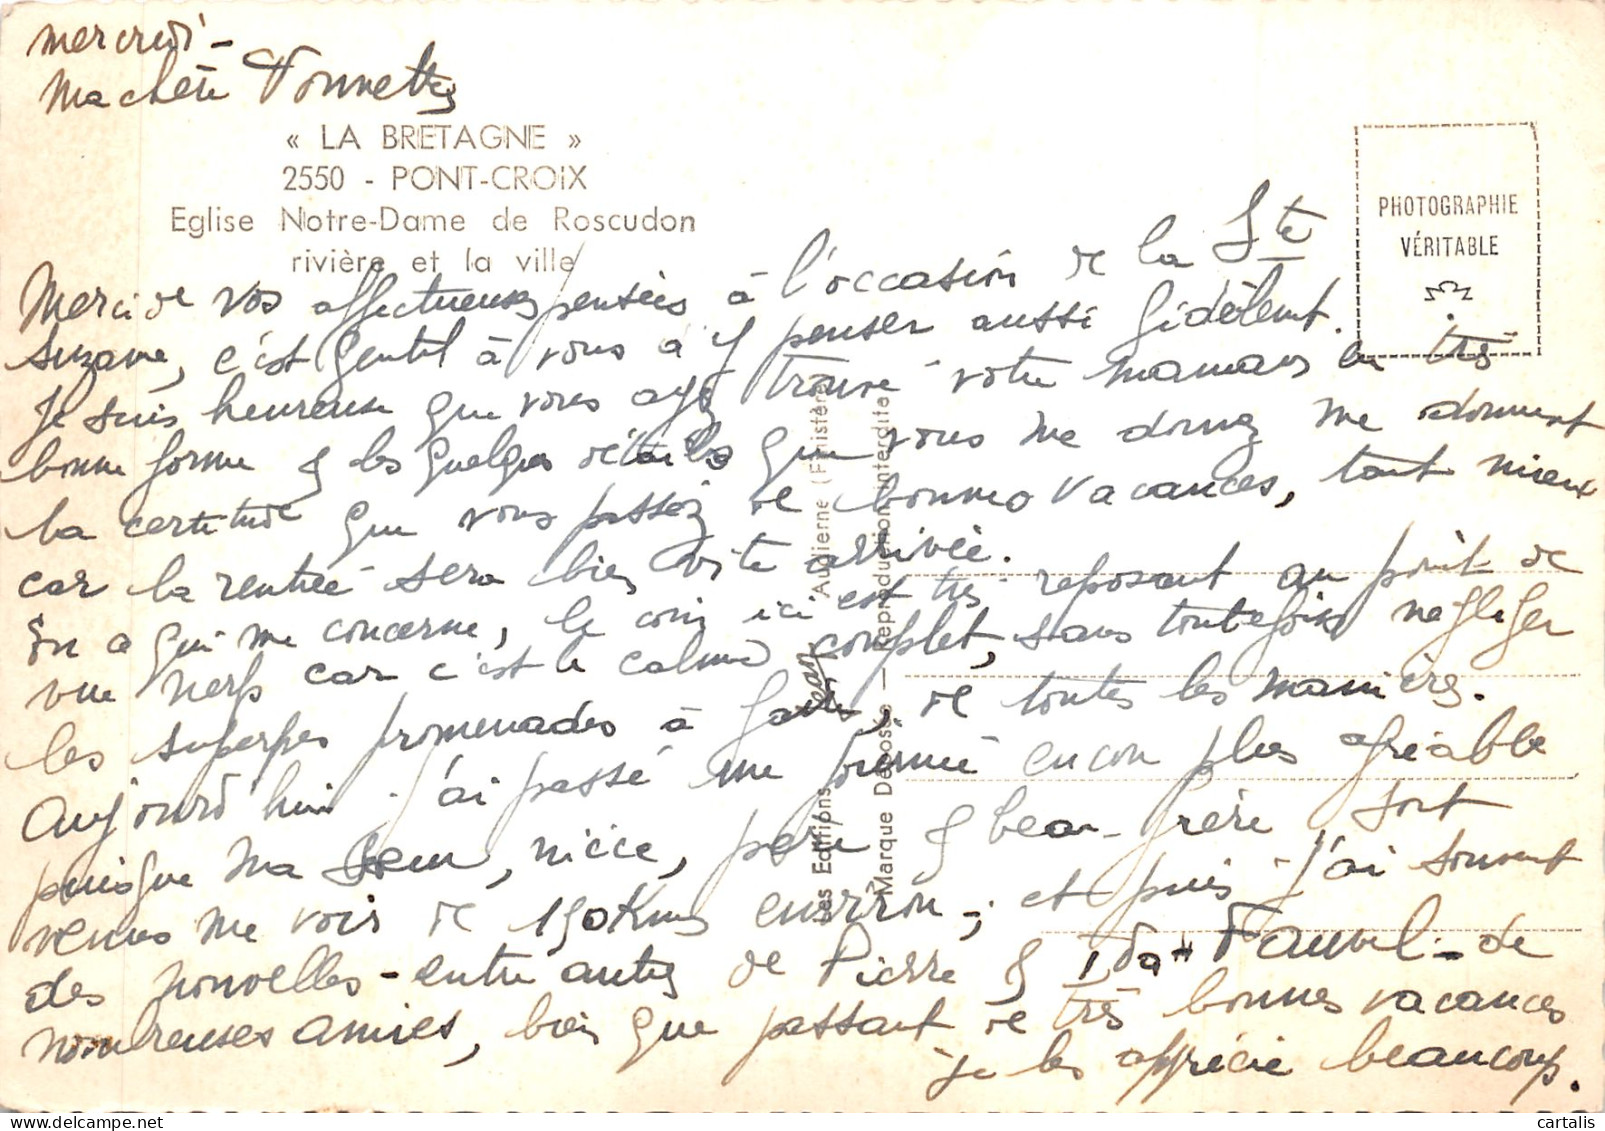 mercredi -
Ma chère Vonnette
« LA BRETAGNE »
2550 - PONT-CROIX
Eglise Notre-Dame de Roscudon
rivière et la ville
PHOTOGRAPHIE
VÉRITABLE
Merci de vos affectueuses pensées à l'occasion de la Ste
Suzane, c'est gentil à vous d'y penser aussi fidèlemt.
Je suis heureuse que vous ayez trouvé votre maman en très
bonne forme & les quelques détails que vous me donnez me donnent
la certitude que vous passez de bonnes vacances, tant mieux
car la rentrée sera bien vite arrivée.
En ce qui me concerne, le coin ici est très reposant au point de
vue nerfs car c'est le calme complet, sans toutefois négliger
les superbes promenades à faire, de toutes les manières.
Aujourd'hui j'ai passé une journée encore plus agréable
puisque ma soeur, nièce, père & beau-frère sont
venus me voir de 190 Kms environ -; et puis j'ai souvent
des nouvelles - entre autres de Pierre & Ida Fauvel - de
nombreuses amies, bien que passant de très bonnes vacances
je les apprécie beaucoup.
Les Editions Jean Audierne (Finistère)
Marque Déposée — Reproduction interdite
cartalis.com